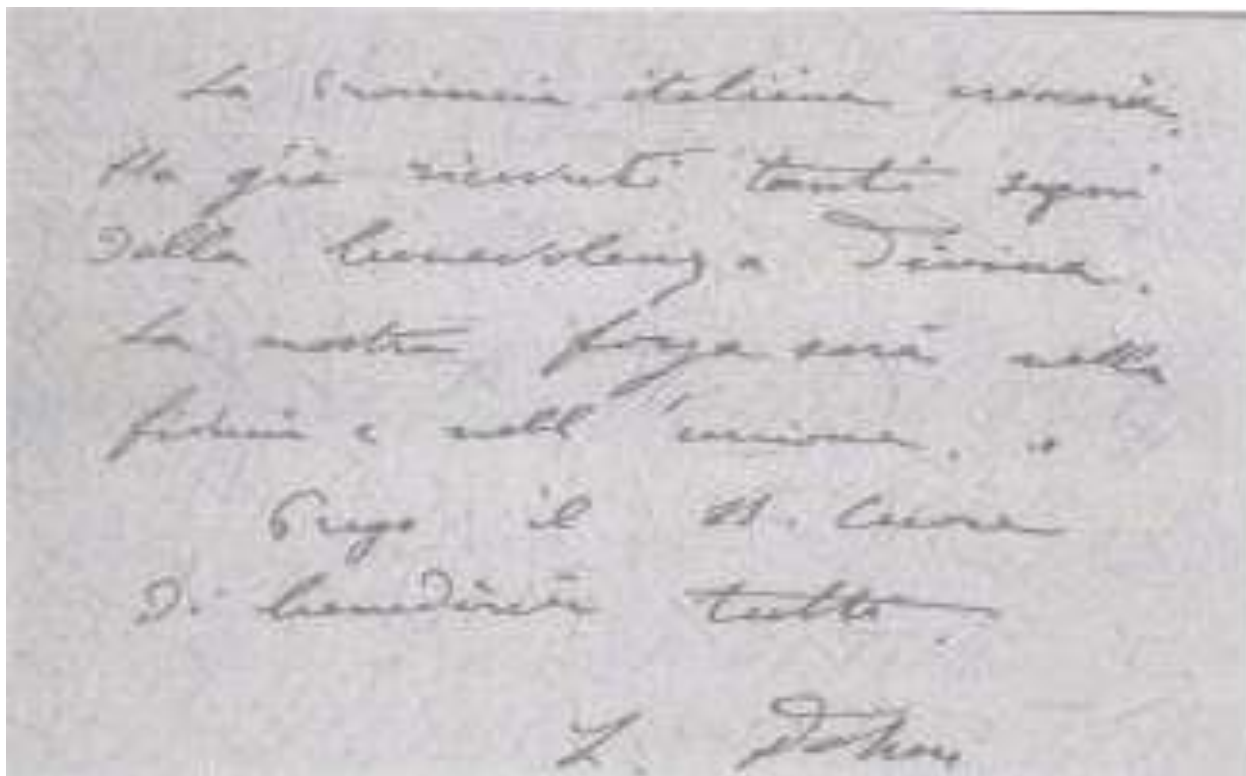 La Provincia italiana crescerà.
Ha già ricevuti tanti segni
della benevolenza divina.
La nostra forza sarà nella
fiducia e nell'unione.
Prego il S. Cuore
di benedire tutto.
L. Dehon